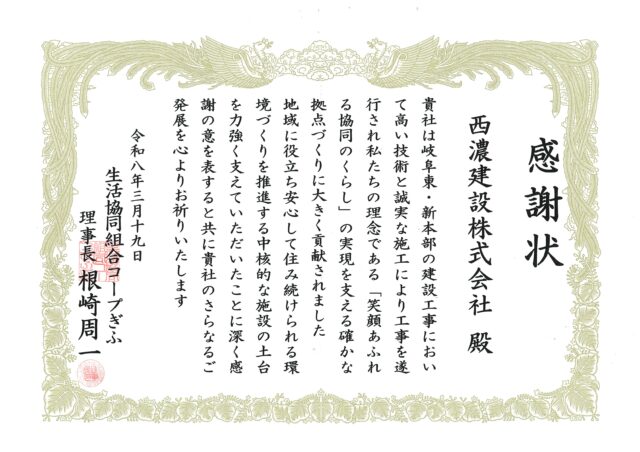 感謝状
西濃建設株式会社 殿
貴社は岐阜東・新本部の建設工事におい
て高い技術と誠実な施工により工事を遂
行され私たちの理念である「笑顔あふれ
る協同のくらし」の実現を支える確かな
拠点づくりに大きく貢献されました
地域に役立ち安心して住み続けられる環
境づくりを推進する中核的な施設の土台
を力強く支えていただいたことに深く感
謝の意を表すると共に貴社のさらなるご
発展を心よりお祈りいたします
令和八年三月十九日
生活協同組合コープぎふ
理事長 根崎周一